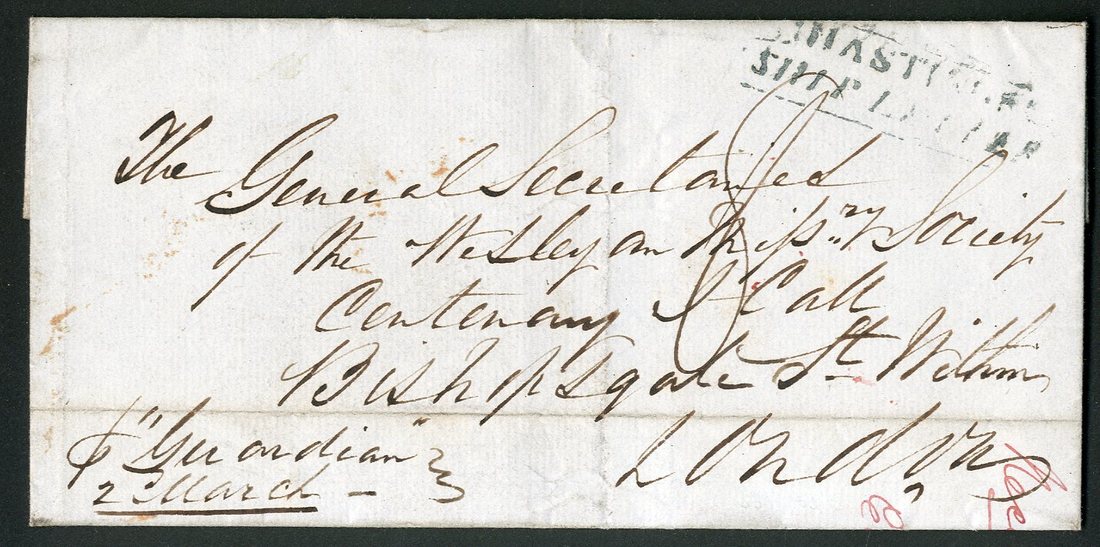 SHIP LETTER
The
General Secretaries
of the Wesleyan Miss.ry Society
Centenary Hall
Bishopsgate St. Within
London
p "Guardian"
2 March
Rec